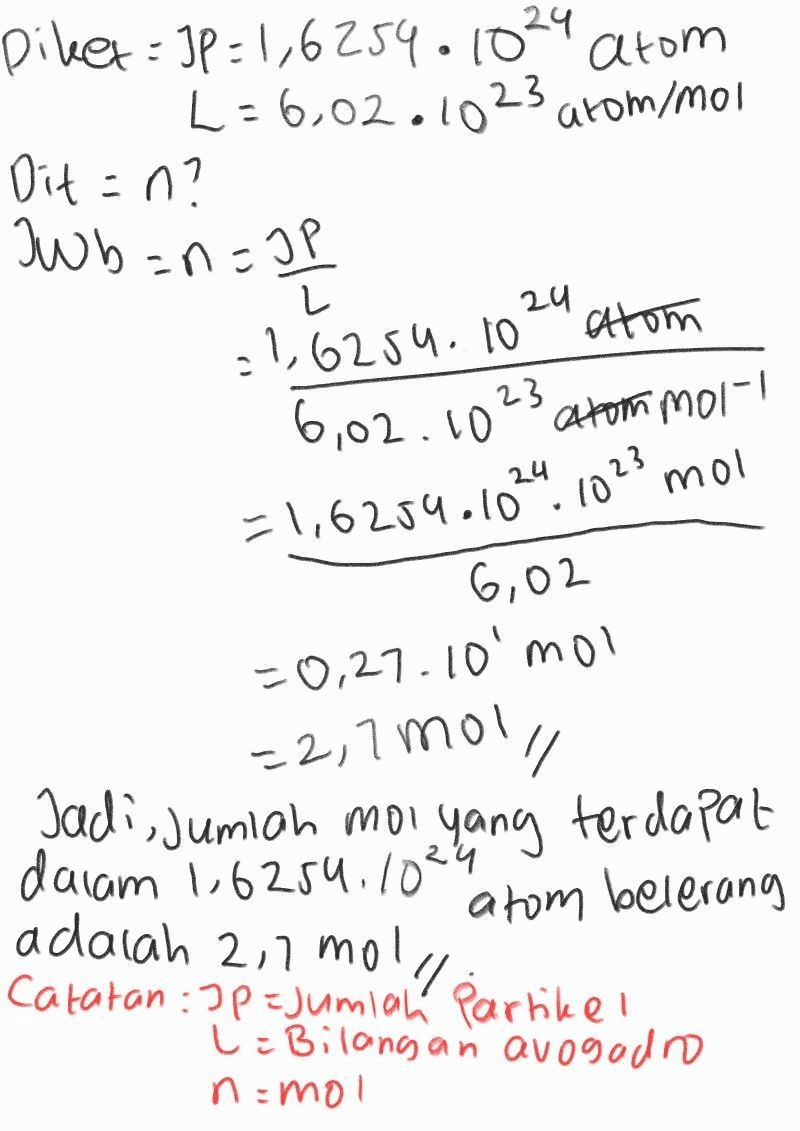 Diket = JP = 1,6254 . 10²⁴ atom
L = 6,02 . 10²³ atom/mol
Dit = n?
JWb = n = JP
L
= 1,6254 . 10²⁴ atom
6,02 . 10²³ atom mol⁻¹
= 1,6254 . 10²⁴ . 10²³ mol
6,02
= 0,27 . 10¹ mol
= 2,7 mol //
Jadi, jumlah mol yang terdapat
dalam 1,6254 . 10²⁴ atom belerang
adalah 2,7 mol //
Catatan : JP = Jumlah Partikel
L = Bilangan avogadro
n = mol